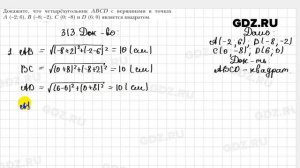 Докажите, что четырёхугольник ABCD с вершинами в точках
A (-2; 6), B (-8; -2), C (0; -8) и D (6; 0) является квадратом.
GDZ.RU
313. Док-во:
Дано
A(-2, 6), B(-8, -2)
C(0, -8), D(6, 0)
Док-ть
ABCD - квадрат
1. AB = √(-8+2)²+(-2-6)² = 10 (см)
BC = √(0+8)²+(-8+2)² = 10 (см)
AD = √(6-0)²+(0+8)² = 10 (см)